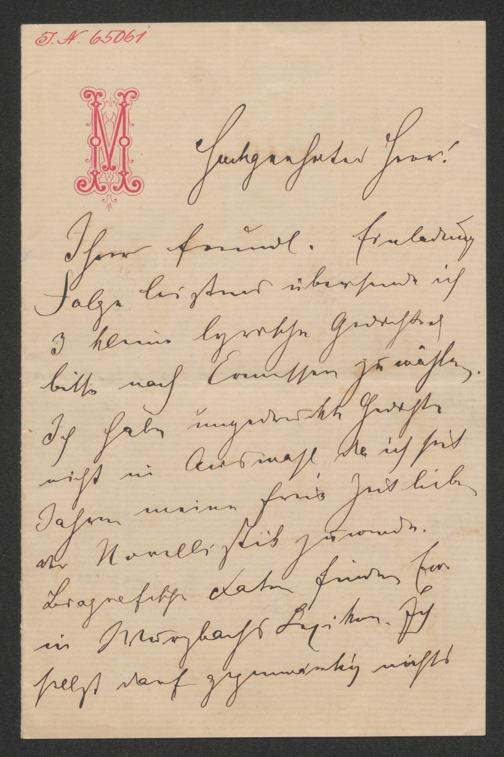 I. N. 65061
M
Hochgeehrter Herr!
Ihrer freundl. Einladung
Folge leistend übersende ich
3 kleine lyrische Gedichte,
bitte nach Ermessen zu wählen.
Ich habe ungedruckte Gedichte
nicht in Auswahl da ich seit
Jahren meine freie Zeit lieber
der Novellistik zuwende.
Biografische Daten finden Sie
in Wurzbachs Lexikon. Ich
selbst darf gegenwärtig nichts